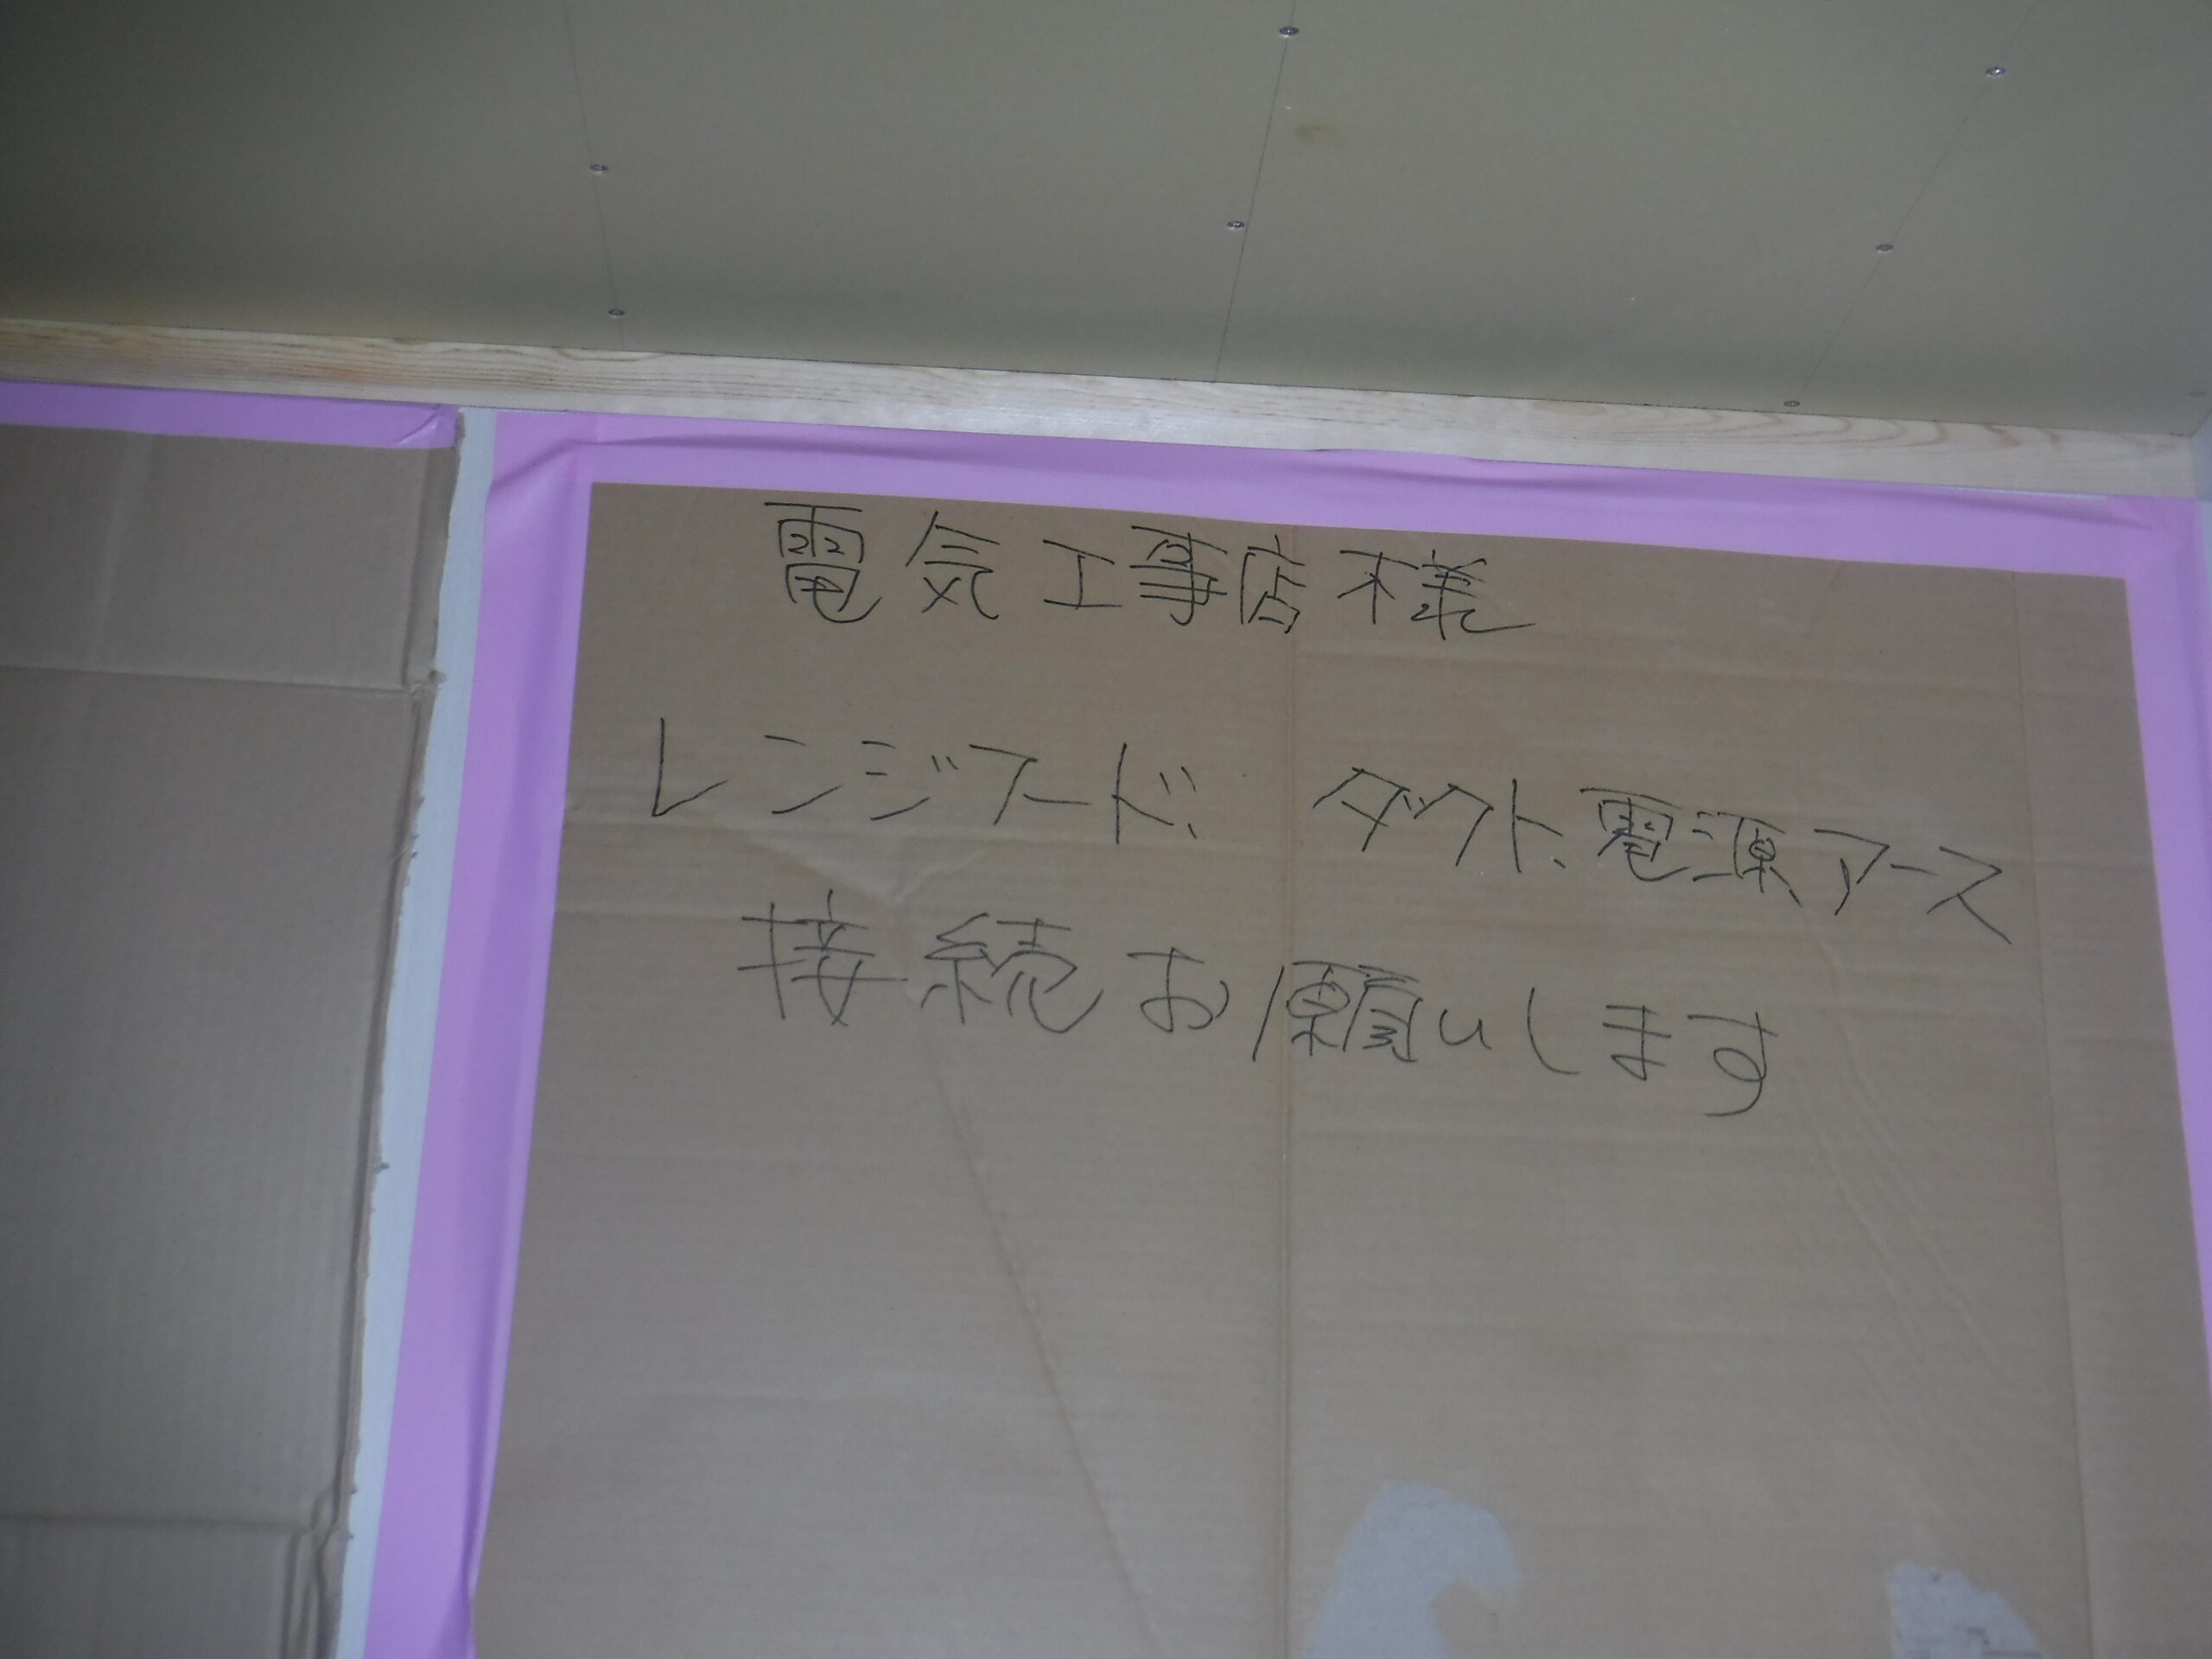 電気工事店様
レンジフード、ダクト、電源アース
接続お願いします